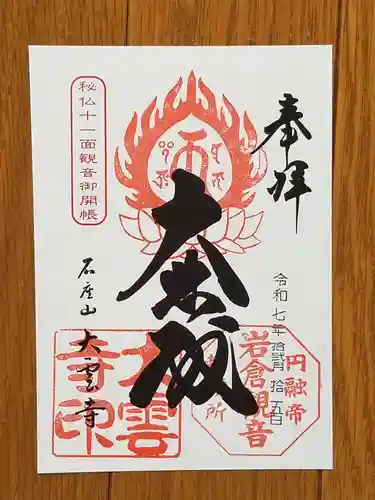 奉拝
令和七年拾弐月拾五日
大悲殿
秘仏十一面観音御開帳
石座山 大雲寺
円融帝
岩倉観音
所
大雲
寺印